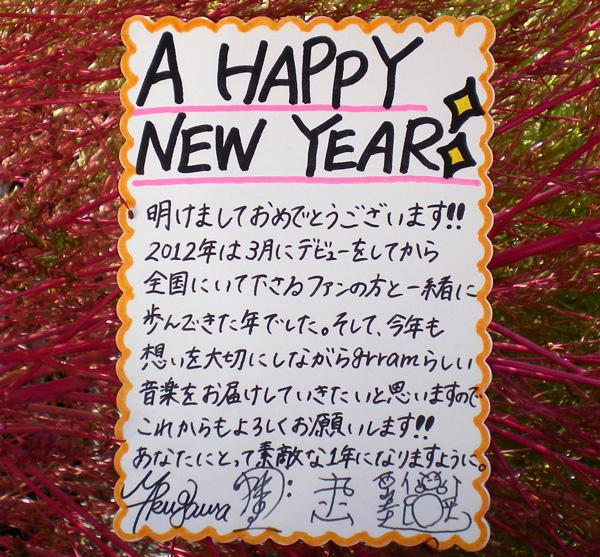 A HAPPY
NEW YEAR
明けましておめでとうございます!!
2012年は3月にデビューをしてから
全国にいて下さるファンの方と一緒に
歩んできた年でした。そして、今年も
想いを大切にしながらgrramらしい
音楽をお届けしていきたいと思いますので
これからもよろしくお願いします!!
あなたにとって素敵な1年になりますように。